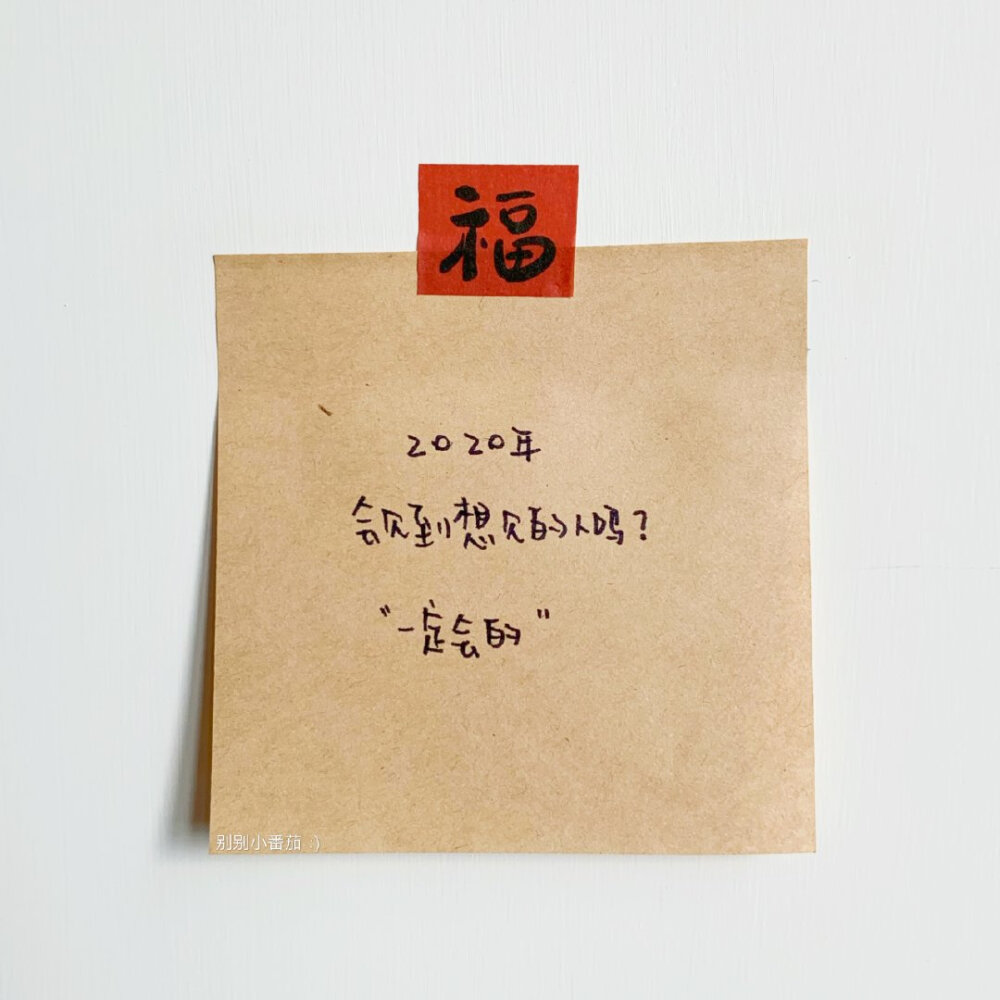 福
2020年
会见到想见的人吗？
"一定会的"
别别小番茄 :)